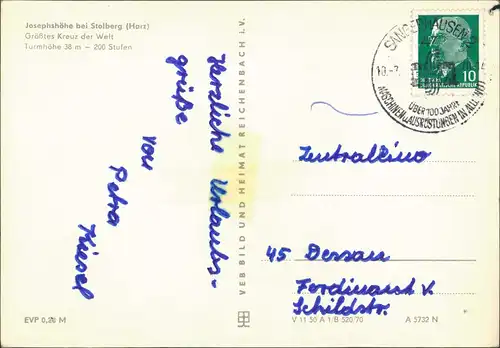 Josephshöhe bei Stolberg (Harz)
Größtes Kreuz der Welt
Turmhöhe 38 m — 200 Stufen
Herzliche Urlaubs-
grüße
von
Petra
Kiesel
EVP 0,20 M
VEB BILD UND HEIMAT REICHENBACH I. V.
SANGERHAUSEN
10.-7.
ÜBER 100 JAHRE
MASCHINEN u. AUSRÜSTUNGEN IN ALLE WELT
10
Zentralkino
45 Dessau
Ferdinand v.
Schildstr.
V 11 50 A 1/B 520/70 A 5732 N